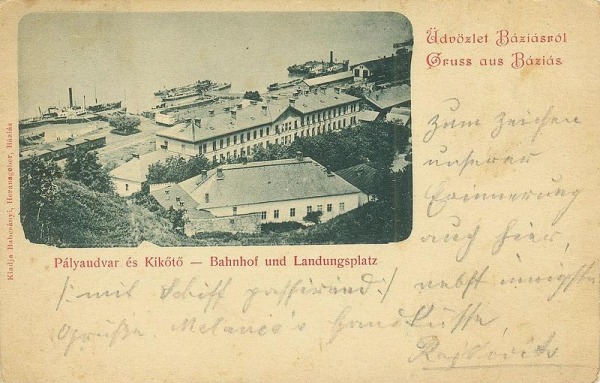 Üdvözlet Báziásról
Gruss aus Báziás
Kiadja Babcsányi, Herausgeber, Báziás
Pályaudvar és Kikötő — Bahnhof und Landungsplatz
Zum Zeichen
unserer
Erinnerung
auch hier,
/: mit Schiff passirend :/ nebst innigste
Grüße Melanie's Handküsse,